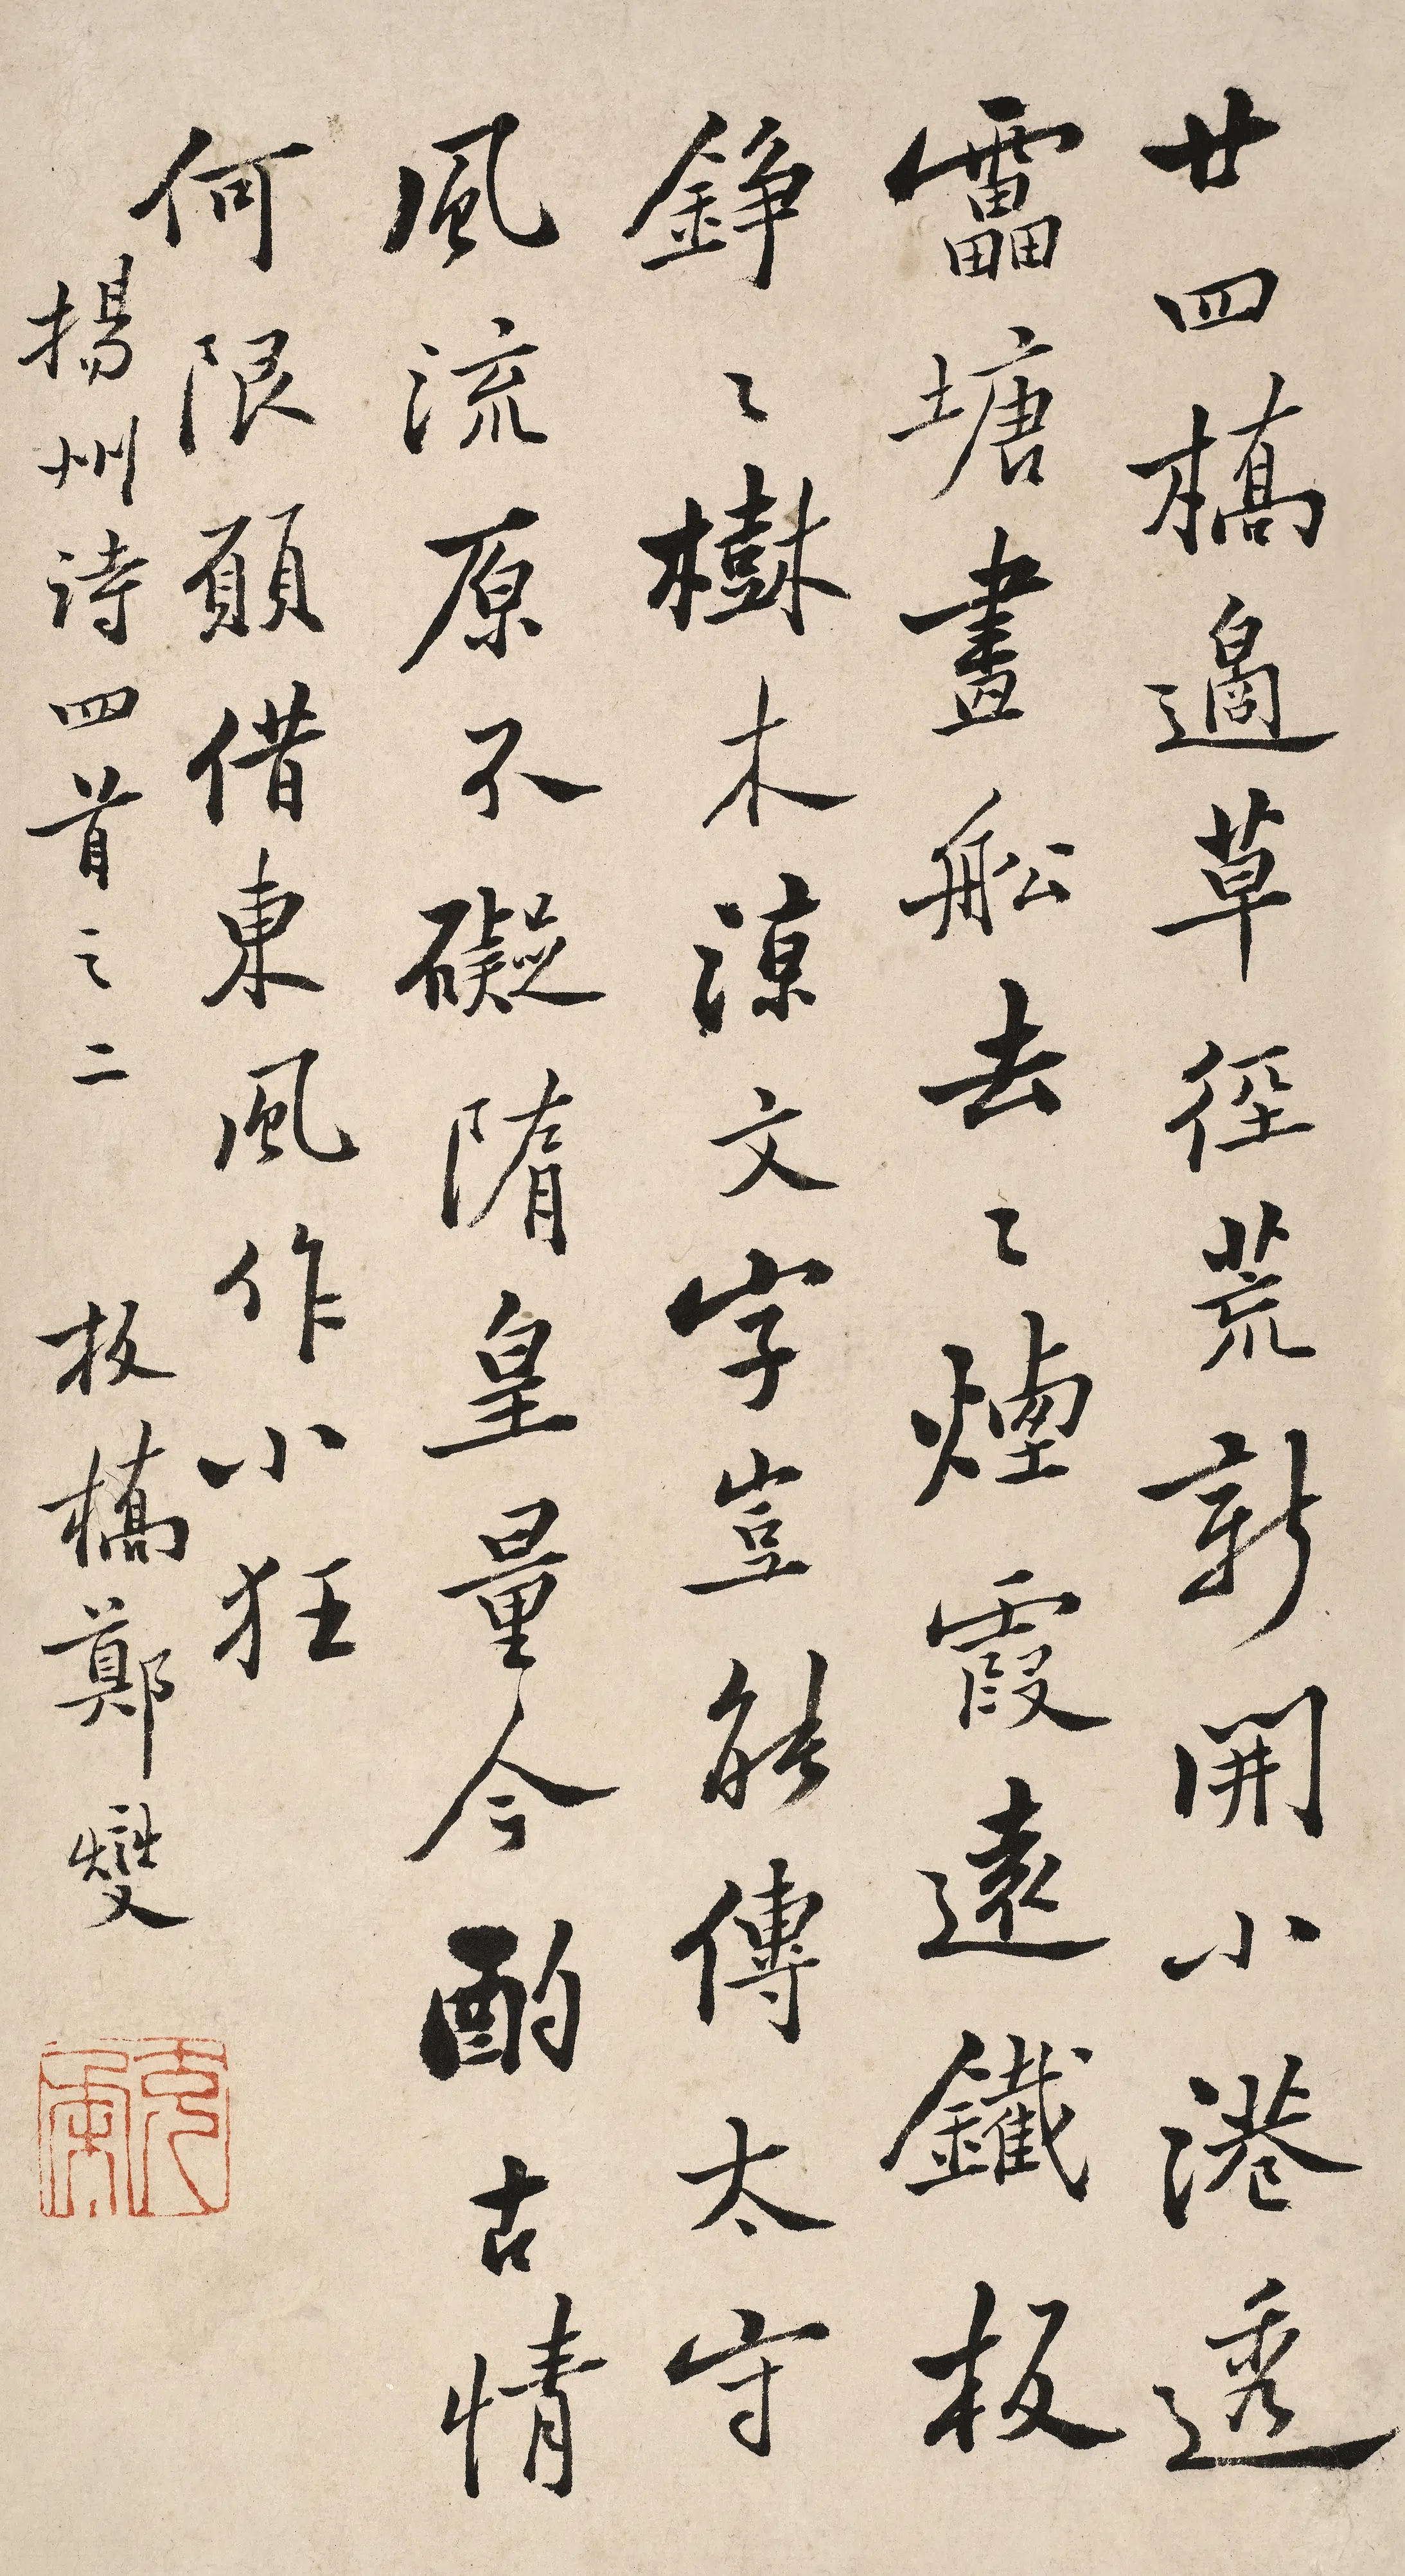 廿四橋邊草徑荒新開小港透
靁塘畫舩去〻煙霞遠鐵板
錚〻樹木涼文字豈能傳太守
風流原不礙隋皇量今酌古情
何限願借東風作小狂
揚州詩四首之二 板橋鄭燮
克柔